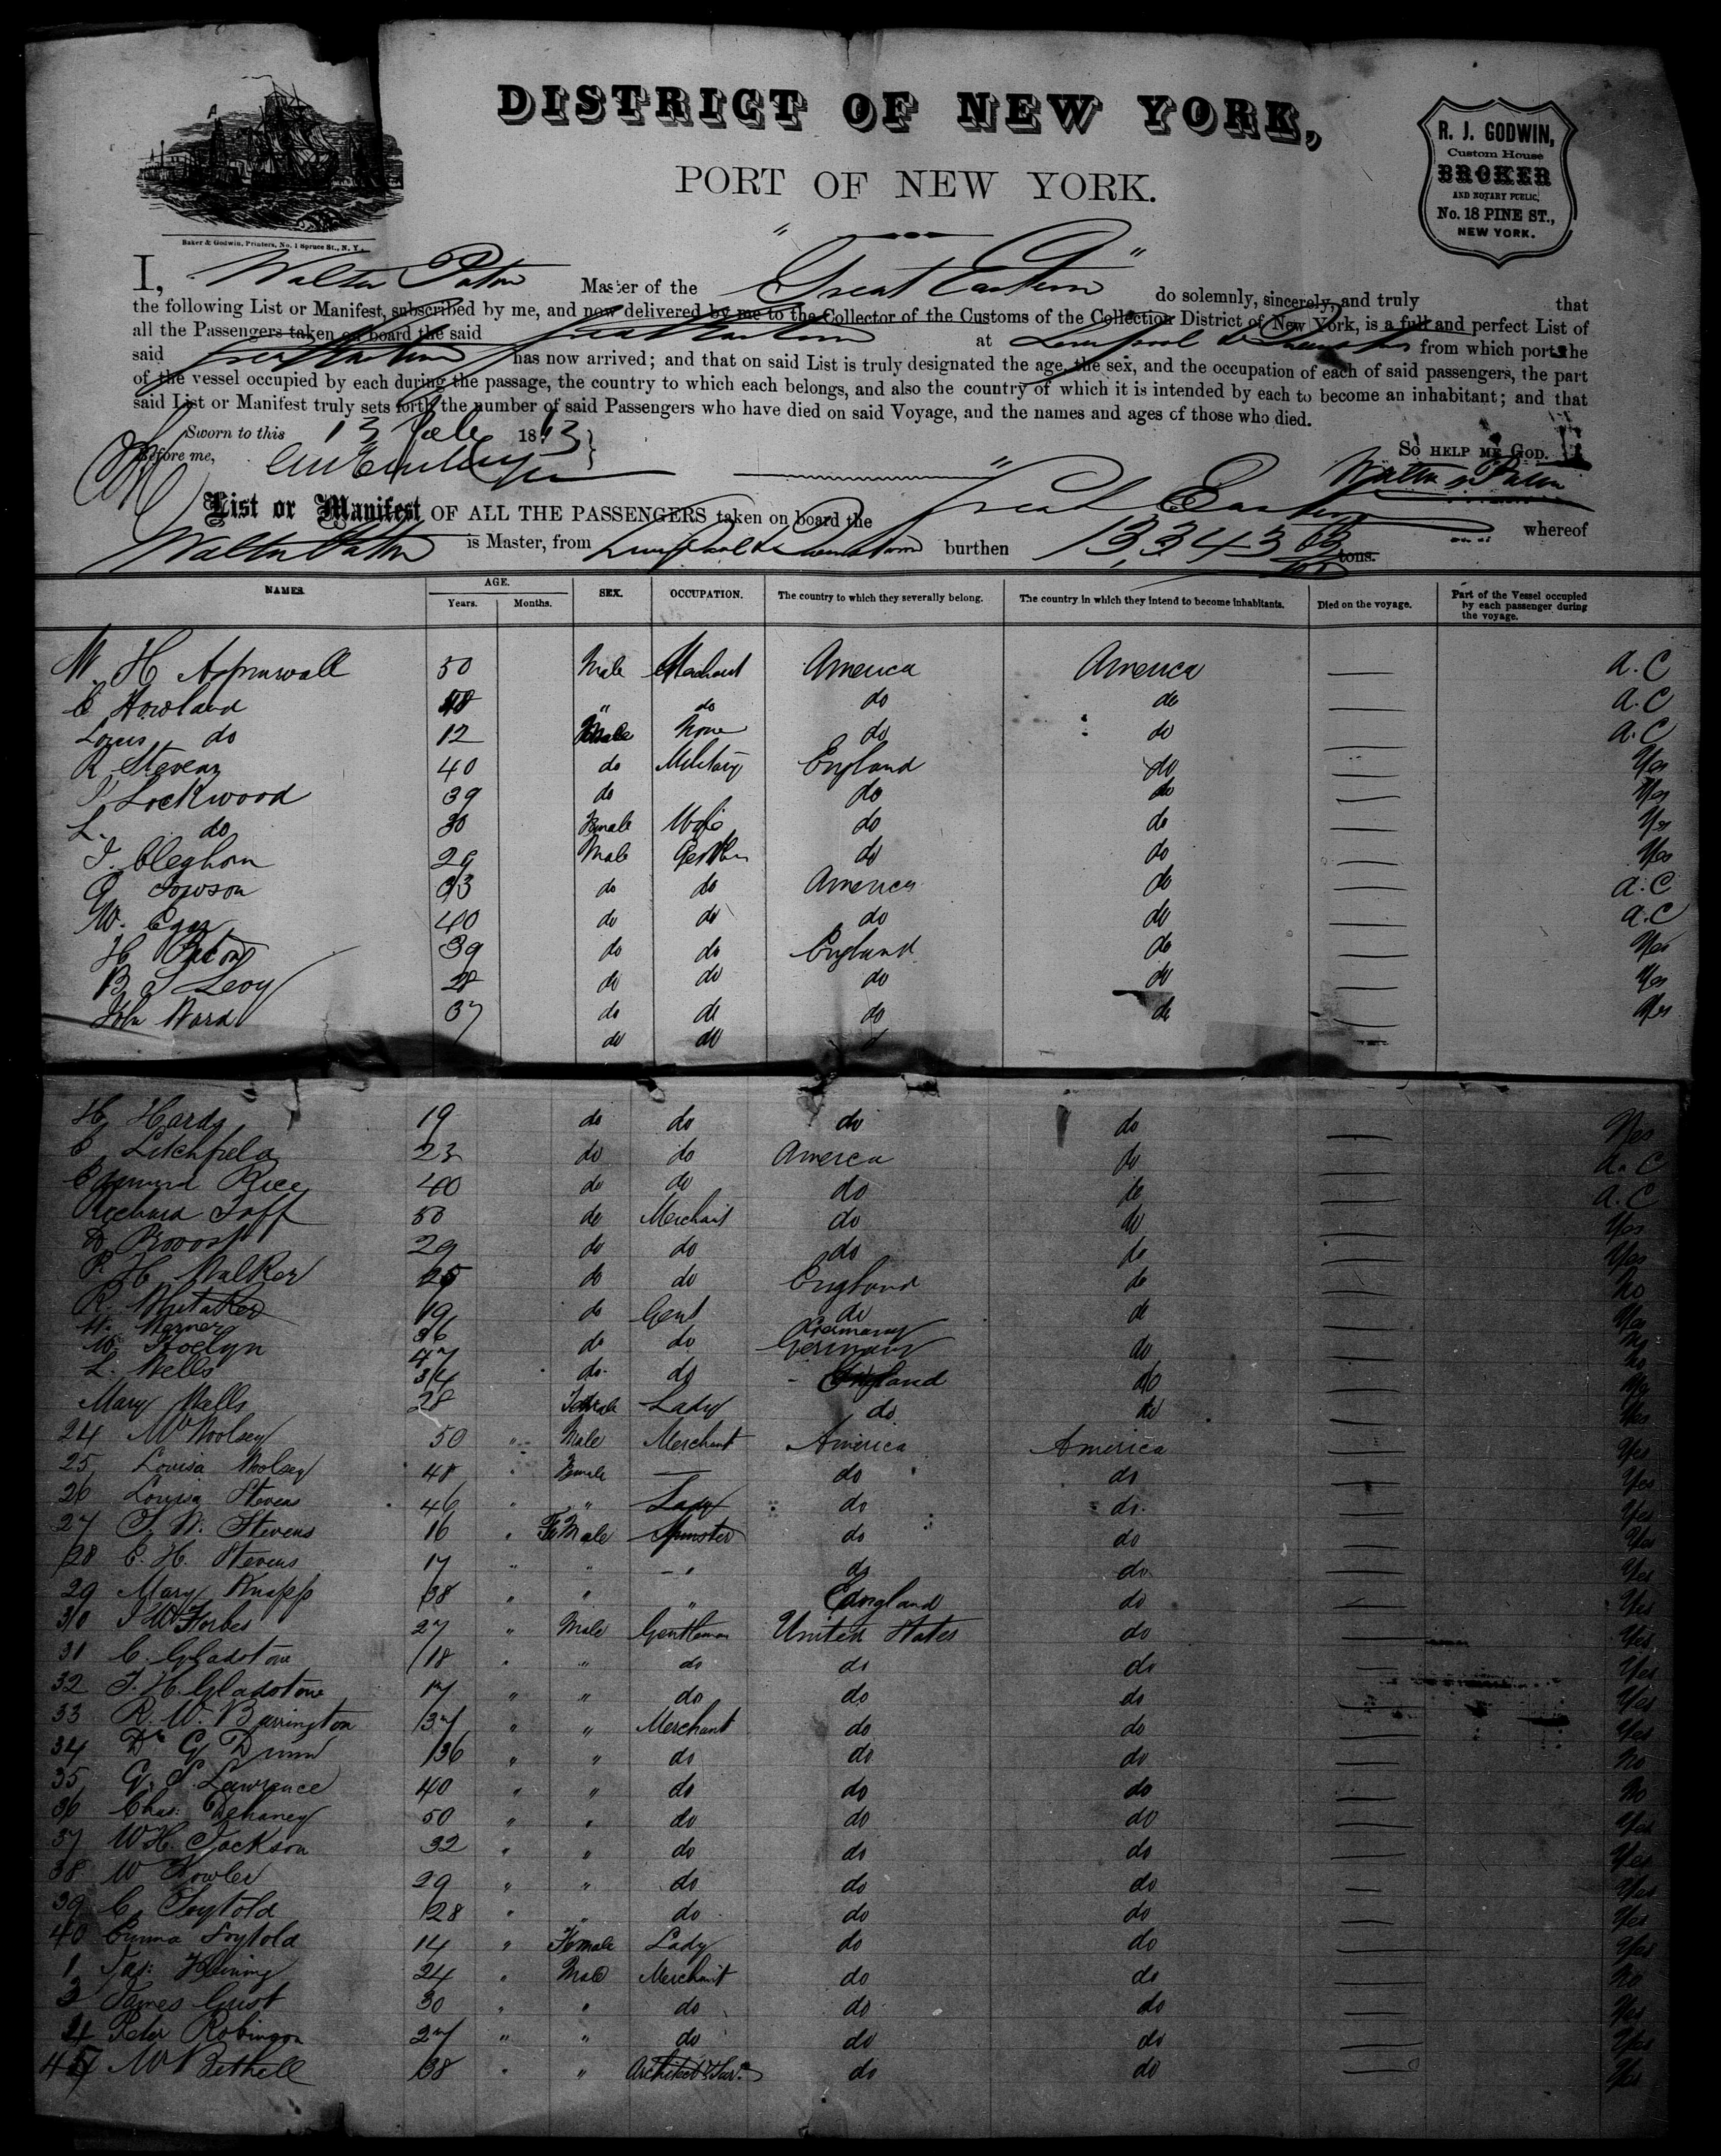 DISTRICT OF NEW YORK,
PORT OF NEW YORK.
R. J. GODWIN,
Custom House
BROKER
AND NOTARY PUBLIC,
No. 18 PINE ST.,
NEW YORK.
Baker & Godwin, Printers, No. 1 Spruce St., N. Y.
I, Walter Paton Master of the "Great Eastern" do solemnly, sincerely, and truly that
the following List or Manifest, subscribed by me, and now delivered by me to the Collector of the Customs of the Collection District of New York, is a full and perfect List of
all the Passengers taken on board the said Great Eastern at Liverpool & from which port the
said Great Eastern has now arrived; and that on said List is truly designated the age, the sex, and the occupation of each of said passengers, the part
of the vessel occupied by each during the passage, the country to which each belongs, and also the country of which it is intended by each to become an inhabitant; and that
said List or Manifest truly sets forth the number of said Passengers who have died on said Voyage, and the names and ages of those who died.
Sworn to this 13 July 1863
Before me,
So HELP ME GOD.
Walter Paton
List or Manifest OF ALL THE PASSENGERS taken on board the Great Eastern whereof
Walter Paton is Master, from Liverpool & Queenstown burthen 13,343 tons.
NAMES. AGE. Years. Months. SEX. OCCUPATION. The country to which they severally belong. The country in which they intend to become inhabitants. Died on the voyage. Part of the Vessel occupied by each passenger during the voyage.
W. H Aspinwall 50 Male Merchant America America — A. C
C Howland 48 " do do do — A. C
Louis do 12 Male None do do — A. C
R Stevens 40 do Military England do — Yes
Lockwood 39 do do do — Yes
L. do 30 Female Wife do do — Yes
J. Cleghorn 29 Male Gentlm do do — Yes
G Towson 33 do do America do — A. C
W. 40 do do do do — A. C
H 39 do do England do — Yes
B S Levy 28 do do do do — Yes
John Ward 37 do do do do — Yes
do do
H Hardy 19 do do do do — Yes
C Litchfield 23 do do America do — A. C
Edmund Rice 40 do do do do — A. C
Richard Taff 50 do Merchant do do — Yes
D Provost 29 do do do do — Yes
P. H. Walker 25 do do England do — No
R. Whitaker 19 do Gent do do — Yes
H. Werner 36 Germany
W. Jocelyn 47 do do Germany do — No
L. Wells 34 do do England do — Yes
Mary Wells 28 Female Lady do do — Yes
24 W Woolsey 50 " Male Merchant America America — Yes
25 Louisa Woolsey 48 " Female — do do — Yes
26 Louisa Stevens 46 " " Lady do do — Yes
27 S. W. Stevens 16 " FeMale Spinster do do — Yes
28 C. H. Stevens 17 " " " do do — Yes
29 Mary Knapp 38 " " " England do — Yes
30 J W Forbes 27 " Male Gentleman United States do — Yes
31 C. Gladstone 18 " " do do do — Yes
32 T. H. Gladstone 17 " " do do do — Yes
33 R. W. Barrington 37 " " Merchant do do — Yes
34 Dr G Dunn 36 " " do do do — No
35 G. S. Lawrance 40 " " do do do — No
36 Chas. Dehaney 50 " " do do do — Yes
37 W H. Jackson 32 " " do do do — Yes
38 W Fowler 29 " " do do do — Yes
39 C. 28 " " do do do — Yes
40 Emma 14 " Female Lady do do — Yes
1 Jas: 24 " Male Merchant do do — No
3 James Grist 30 " " do do do — Yes
4 Peter Robinson 27 " " do do do — Yes
45 W Bethell 38 " " Architect & Sur. do do — Yes